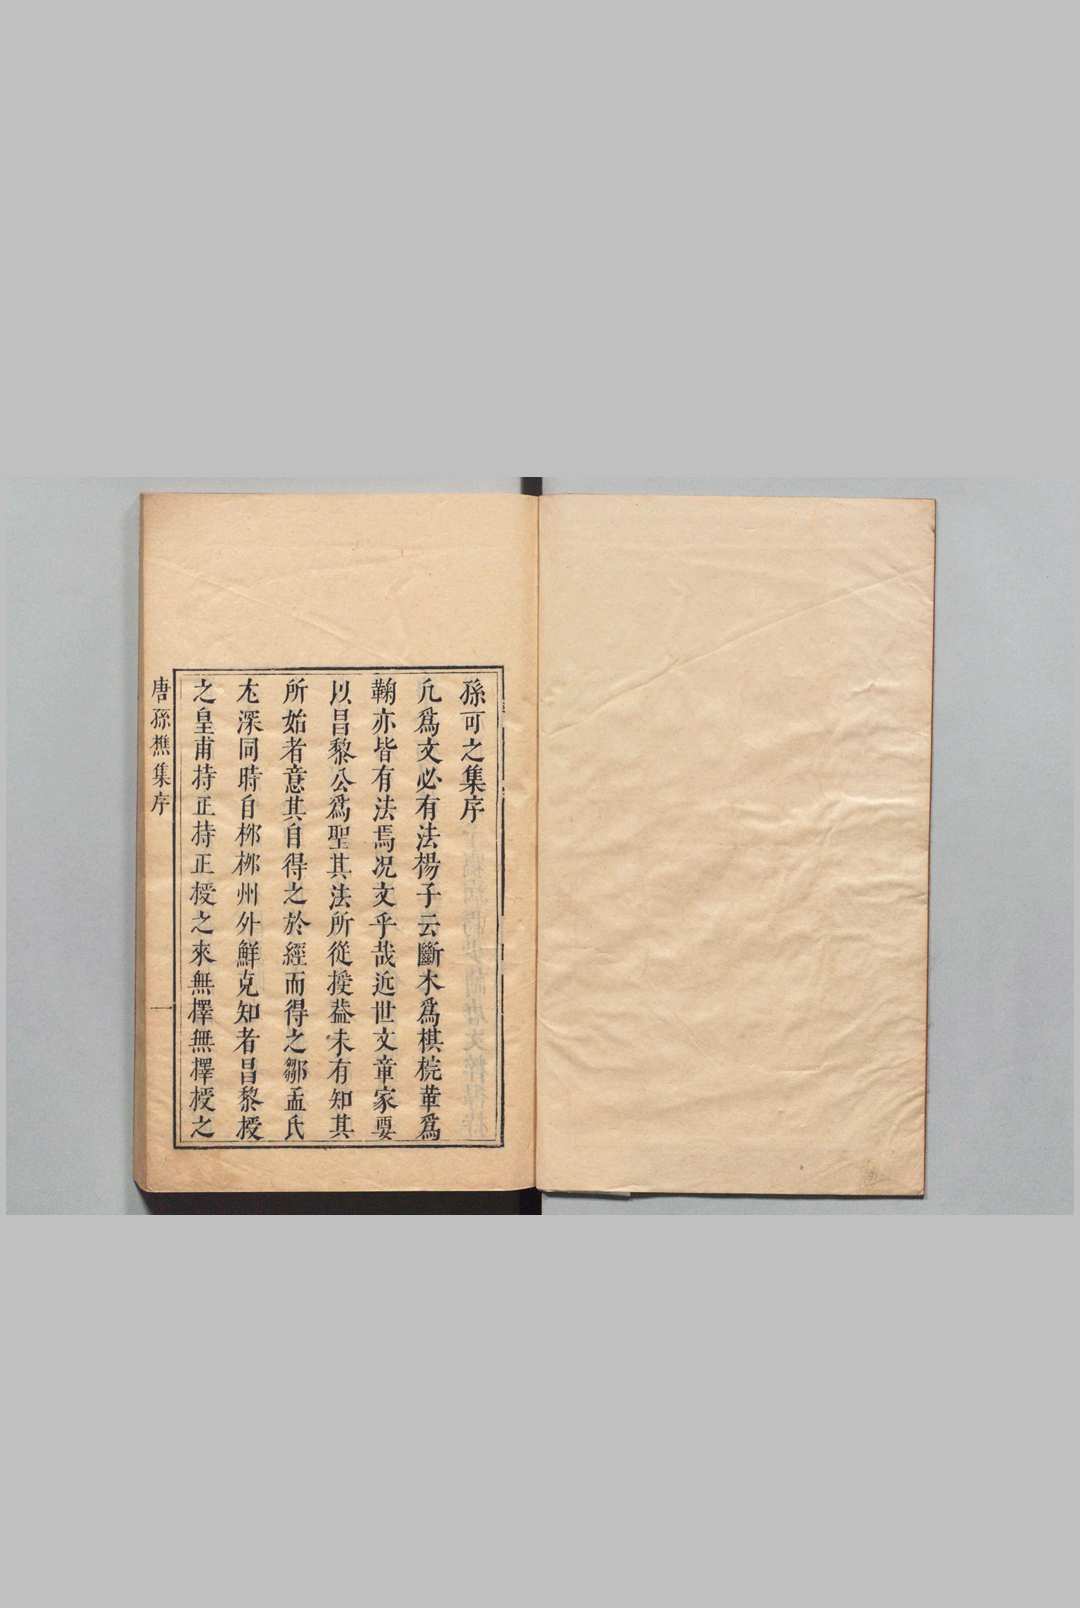 孫可之集序
凡爲文必有法楊子云斷木爲棋梡革爲
鞠亦皆有法焉况文乎哉近世文章家要
以昌黎公爲聖其法所從授葢未有知其
所始者意其自得之於經而得之鄒孟氏
尤深同時自桞桞州外鮮克知者昌黎授
之皇甫持正持正授之來無擇無擇授之
唐孫樵集序
一